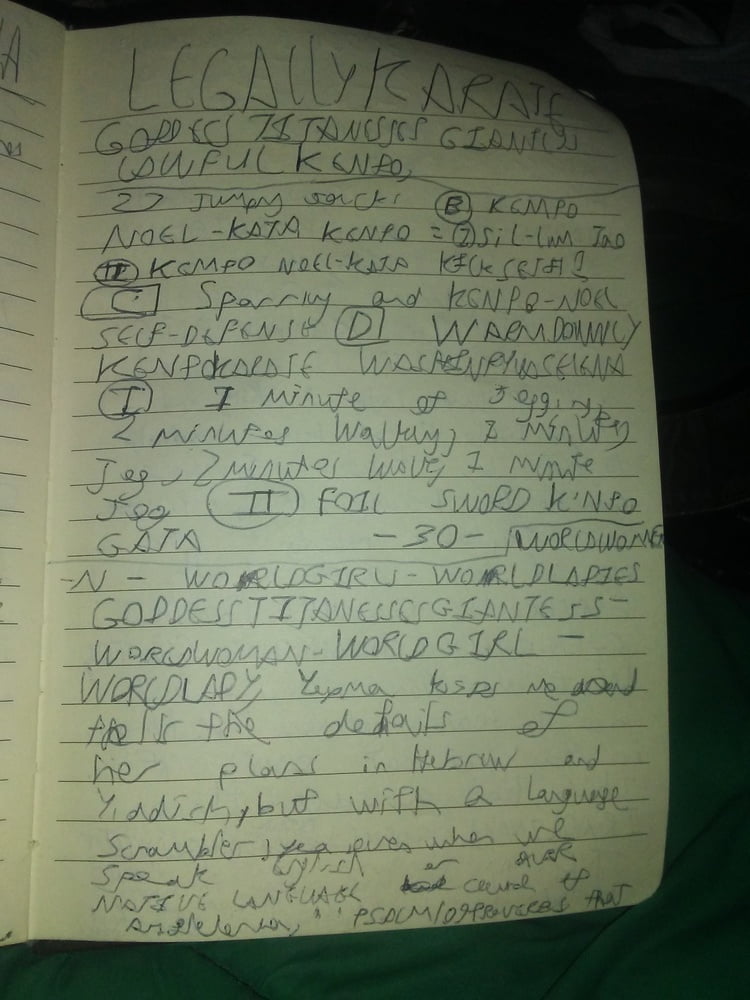 LEGALLY KARATE
GODDESS TITANESSES GIANTESS
LAWFUL KENPO,
27 Jumpg Jacks (B) KEMPO
NOEL-KATA KENPO = (I) Sil-lum Tao
(II) KEMPO NOEL-KATA KICK SET #1
C. Sparring and KENPO-NOEL
SELF-DEFENSE D WARMDOWNLY
KENPOKARATE
(I) 1 minute of Jogging,
2 minutes Walking, 1 minute
Jog, 2 minutes walk, 1 minute
Jog (II) FOIL SWORD KENPO
GATA -30- WORLDWOMEN
-N- WORLDGIRLS-WORLDLADIES
GODDESSTITANESSESGIANTESS-
WORLDWOMAN-WORLDGIRL-
WORLDLADY kisses me and
tells the details of
her plans in Hebrew and
Yiddish, but with a language
Scrambler, even when we
Speak English or OUR
NATIVE LANGUAGE of
that